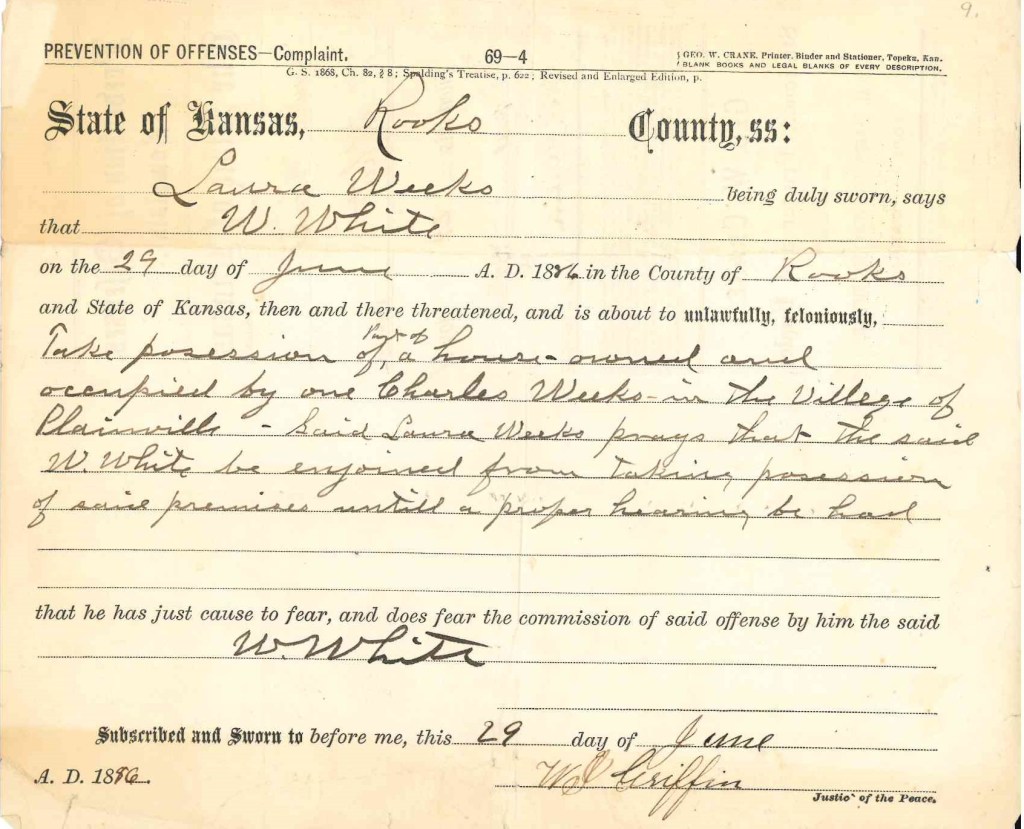 9.
PREVENTION OF OFFENSES—Complaint. 69—4 GEO. W. CRANE, Printer, Binder and Stationer, Topeka, Kan.
BLANK BOOKS AND LEGAL BLANKS OF EVERY DESCRIPTION.
G. S. 1868, Ch. 82, § 8; Spalding's Treatise, p. 622; Revised and Enlarged Edition, p.
State of Kansas, Rooks County, ss:
Laura Weeks being duly sworn, says
that W. White
on the 29 day of June A. D. 1886 in the County of Rooks
and State of Kansas, then and there threatened, and is about to unlawfully, feloniously,
Part of
Take posession of, a house owned and
occupied by one Charles Weeks - in the Village of
Plainville - Said Laura Weeks prays that the said
W. White be enjoined from taking posession
of said premises untill a proper hearing be had
that he has just cause to fear, and does fear the commission of said offense by him the said
W. White
Subscribed and Sworn to before me, this 29 day of June
A. D. 1886. Griffin
Justice of the Peace.